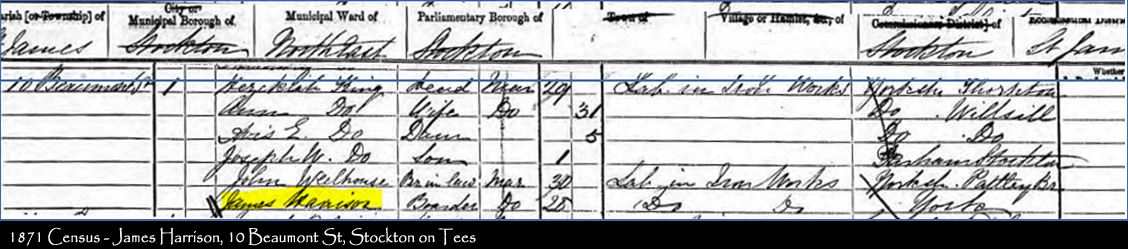 arish [or Township] of
City or
Municipal Borough of
Municipal Ward of
Parliamentary Borough of
Town of
Village or Hamlet, &c., of
District] of
Ecclesiastical Distri
James Stockton North East Stockton Stockton St Jam
Whether
10 Beaumont St 1 Hezekiah King Head Mar 49 Lab. in Iron Works Yorksh.
Ann Do Wife Do 31 Do
E. Do Daur 5 Do Do
Joseph W. Do Son 1 Durham Stockton
John Br in law Mar 30 Lab. in Iron Works Yorksh.
James Harrison Boarder Do 28 Do Do York
1871 Census - James Harrison, 10 Beaumont St, Stockton on Tees